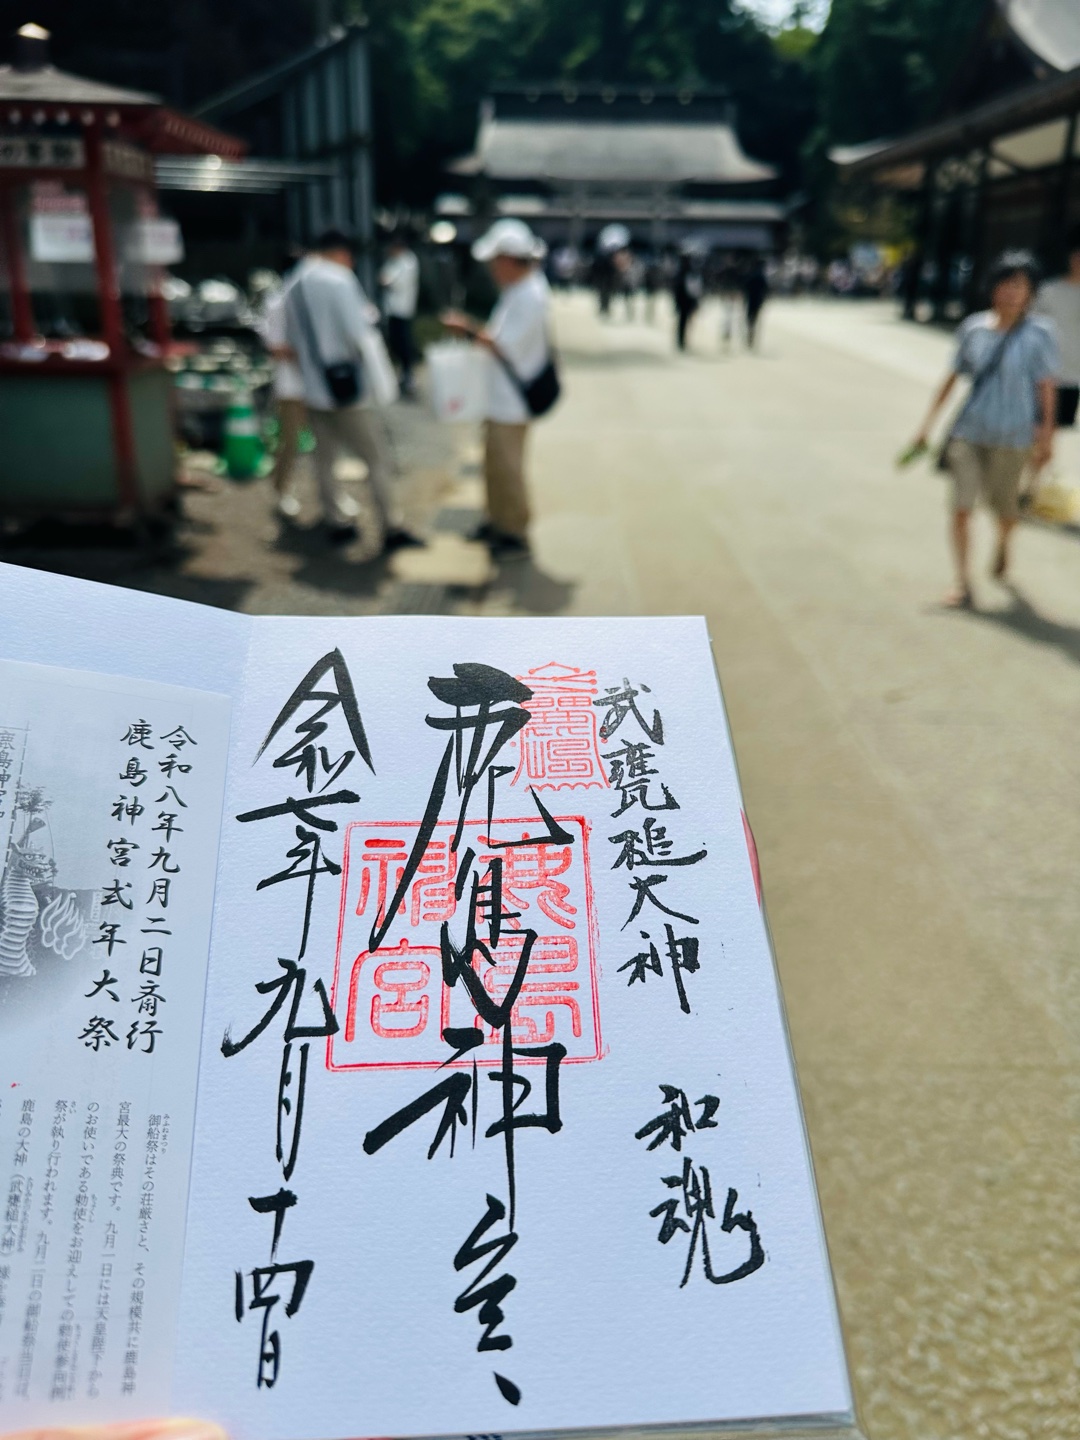 武甕槌大神　和魂
鹿島神宮
令和七年九月十四日
鹿島神宮
令和八年九月二日斎行
鹿島神宮式年大祭
御船祭はその荘厳さと、その規模共に鹿島神
宮最大の祭典です。九月一日には天皇陛下から
のお使いである勅使をお迎えしての勅使参向
祭が執り行われます。九月二日の御船祭
鹿島の大神（武甕槌大神）
鹿島神宮